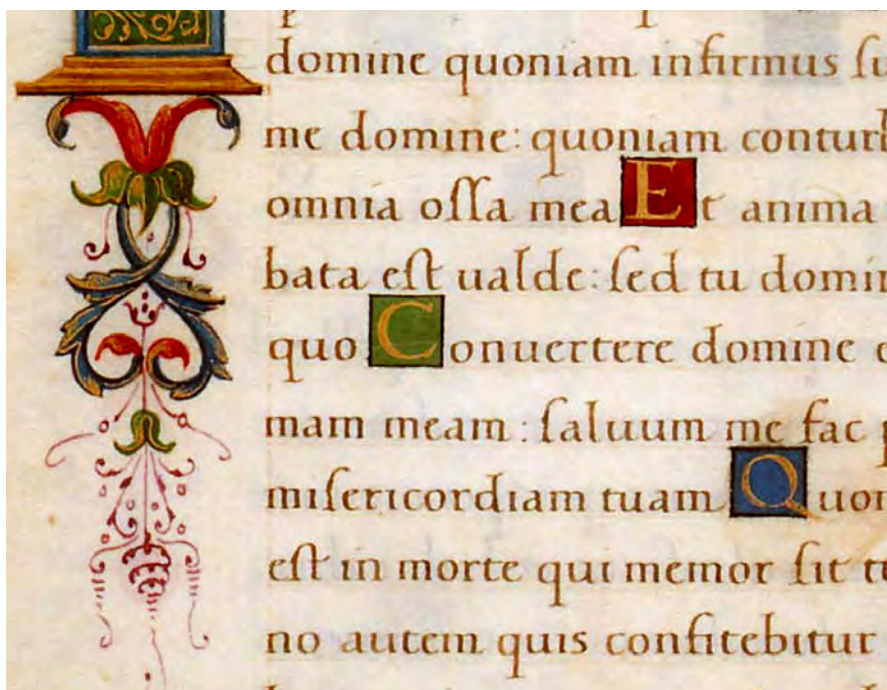 domine quoniam infirmus ſu
me domine: quoniam conturb
omnia oſſa mea Et anima
bata eſt ualde: ſed tu domin
quo Conuertere domine e
mam meam: ſaluum me fac p
miſericordiam tuam Quon
eſt in morte qui memor ſit tu
no autem quis confitebitur